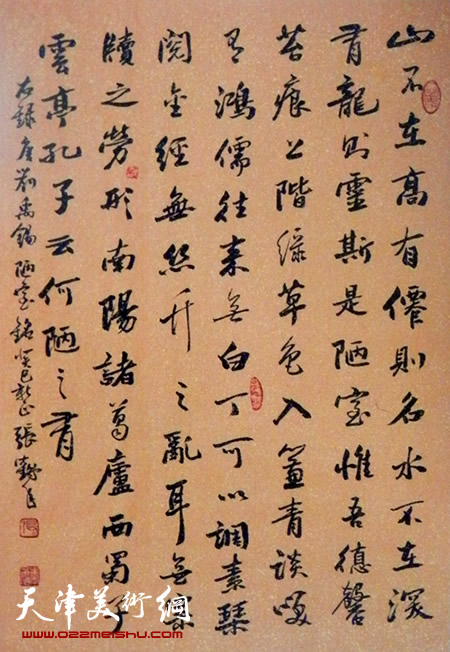 山不在高有僊則名水不在深
有龍則靈斯是陋室惟吾德馨
苔痕上階綠草色入簾青談咲
有鴻儒往來无白丁可以調素琴
閱金經無絲竹之亂耳无案
牘之勞形南陽諸葛廬西蜀子
雲亭孔子云何陋之有
右錄唐劉禹錫陋室銘癸巳張
天津美術網
www.022meishu.com